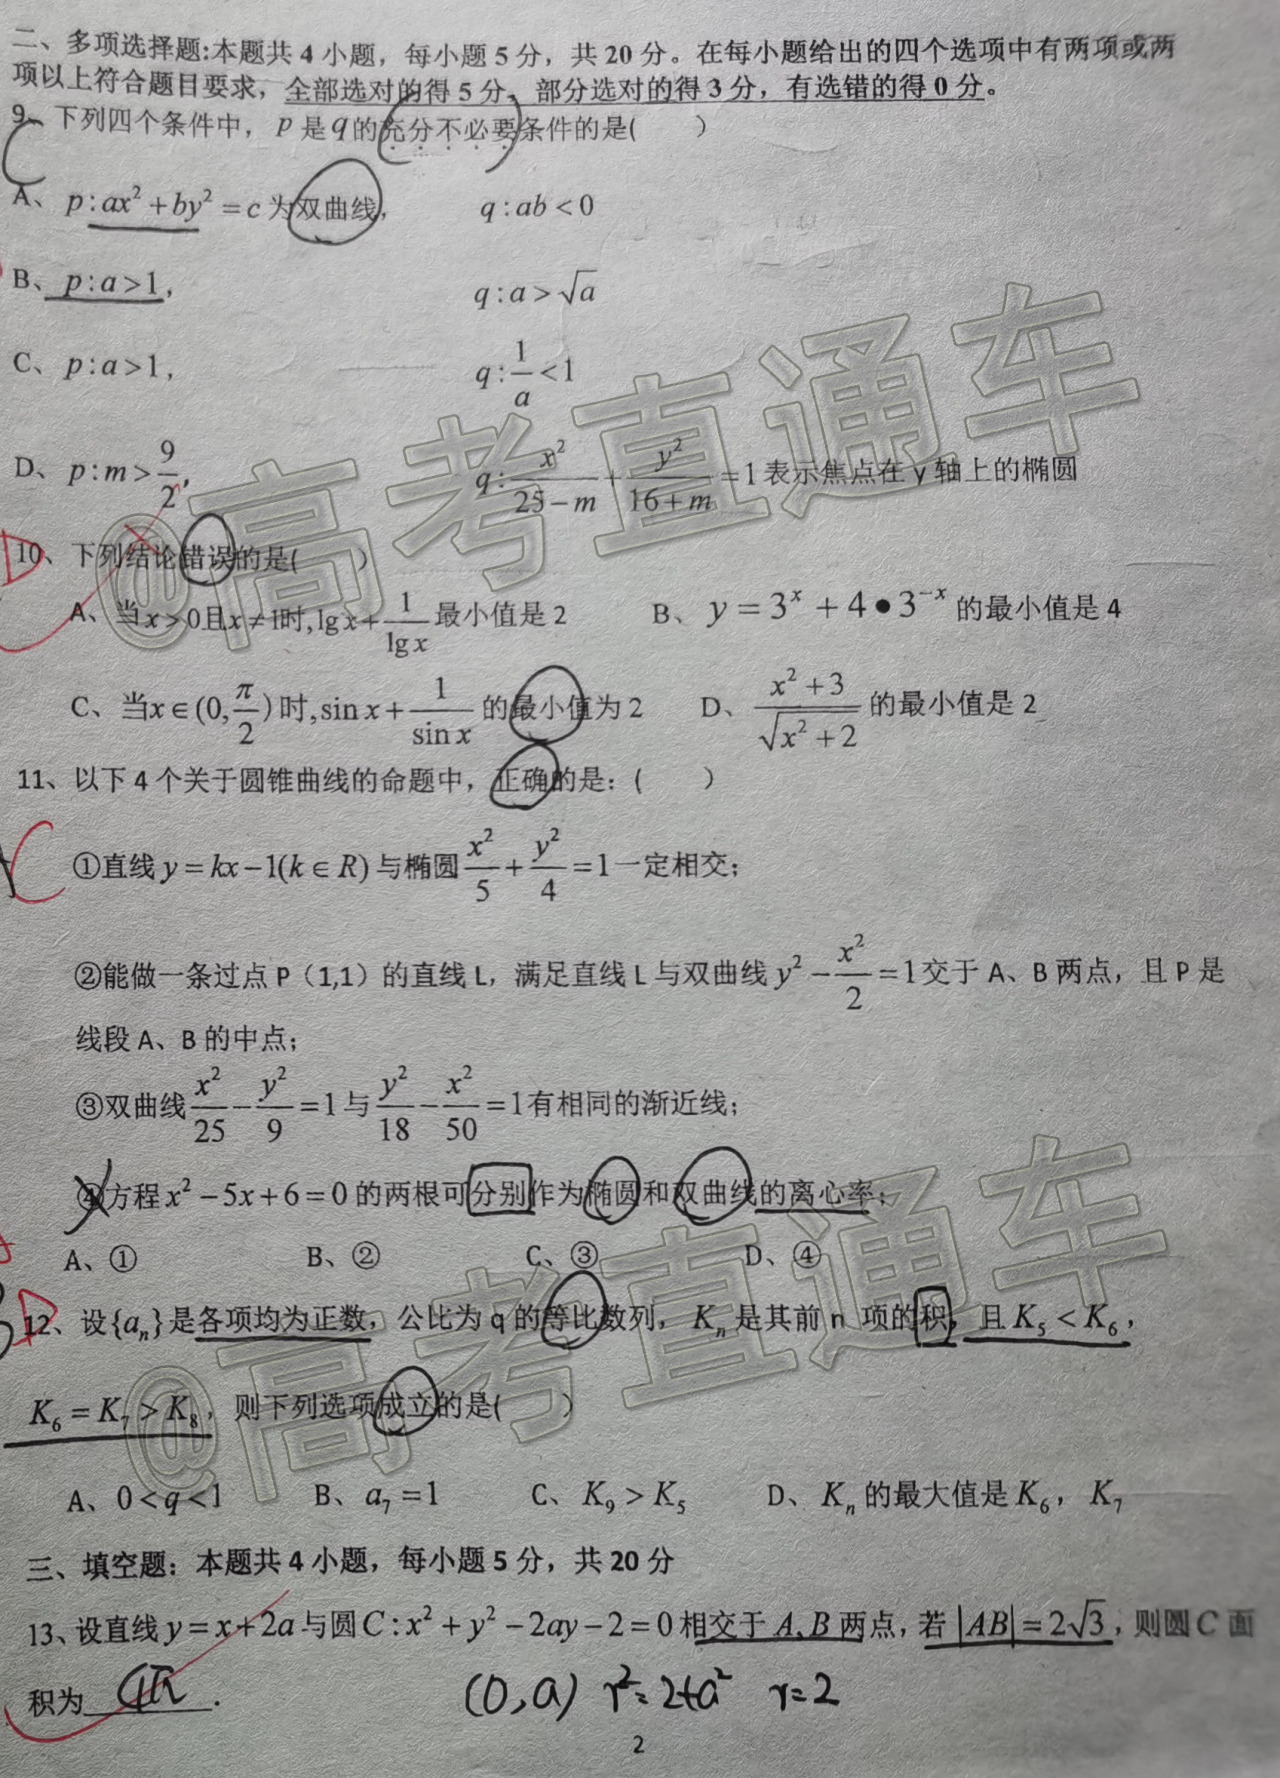 二、多项选择题:本题共 4 小题，每小题 5 分，共 20 分。在每小题给出的四个选项中有两项或两
项以上符合题目要求，全部选对的得 5 分，部分选对的得 3 分，有选错的得 0 分。
9、下列四个条件中，p 是 q 的充分不必要条件的是(　　)
A、p:ax²+by²=c 为双曲线，　　q:ab<0
B、p:a>1，　　q:a>√a
C、p:a>1，　　q:1/a<1
D、p:m>9/2，　　q:x²/(25-m)+y²/(16+m)=1 表示焦点在 y 轴上的椭圆
10、下列结论错误的是(　　)
A、当x>0且x≠1时,lgx+1/lgx 最小值是 2　　B、y=3ˣ+4•3⁻ˣ 的最小值是 4
C、当x∈(0,π/2)时,sinx+1/sinx 的最小值为 2　　D、(x²+3)/√(x²+2) 的最小值是 2
11、以下 4 个关于圆锥曲线的命题中，正确的是：(　　)
①直线 y=kx-1(k∈R) 与椭圆 x²/5+y²/4=1 一定相交；
②能做一条过点 P（1,1）的直线 L，满足直线 L 与双曲线 y²-x²/2=1 交于 A、B 两点，且 P 是
线段 A、B 的中点；
③双曲线 x²/25-y²/9=1 与 y²/18-x²/50=1 有相同的渐近线；
④方程 x²-5x+6=0 的两根可分别作为椭圆和双曲线的离心率；
A、①　　B、②　　C、③　　D、④
12、设{aₙ}是各项均为正数，公比为 q 的等比数列，Kₙ 是其前 n 项的积，且 K₅<K₆，
K₆=K₇>K₈，则下列选项成立的是(　　)
A、0<q<1　　B、a₇=1　　C、K₉>K₅　　D、Kₙ 的最大值是 K₆，K₇
三、填空题：本题共 4 小题，每小题 5 分，共 20 分
13、设直线 y=x+2a 与圆 C:x²+y²-2ay-2=0 相交于 A,B 两点，若 |AB|=2√3，则圆 C 面
积为 4π .
(0,a) r²=2+a² r=2
2
@高考直通车
@高考直通车